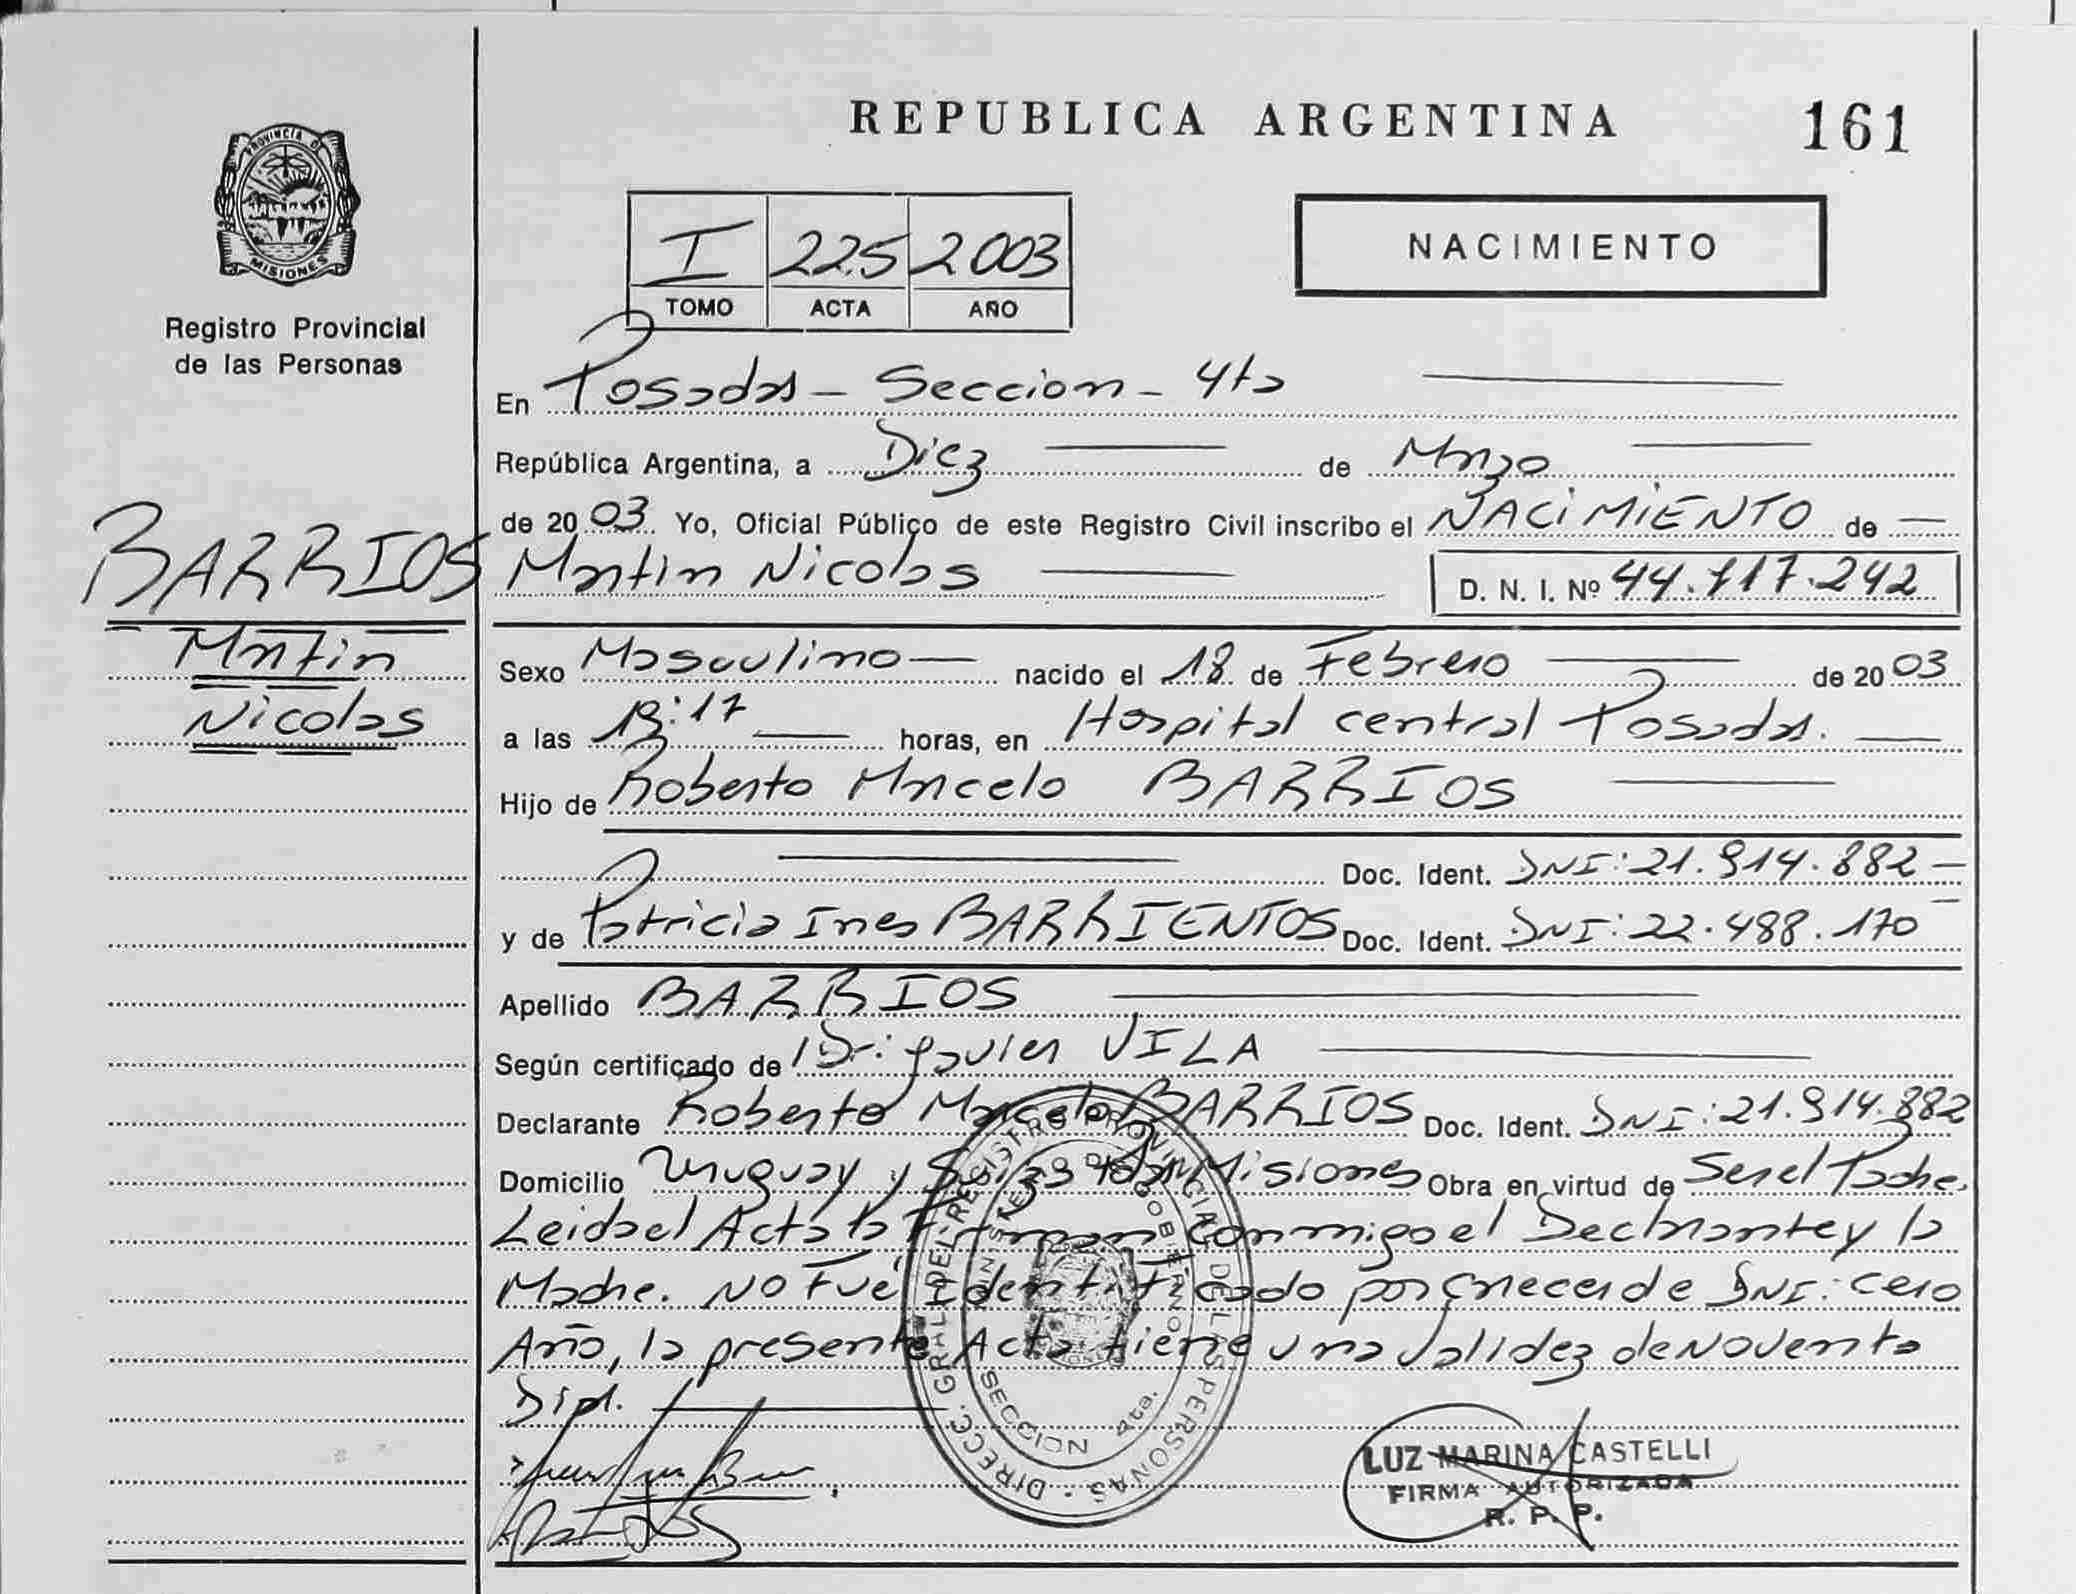 REPUBLICA ARGENTINA
161
PROVINCIA D
MISIONES
Registro Provincial
de las Personas
I 225 2003
TOMO ACTA AÑO
NACIMIENTO
En Posadas - Seccion - 4ta
República Argentina, a Diez de Marzo
de 2003 Yo, Oficial Público de este Registro Civil inscribo el NACIMIENTO de
BARRIOS
Martin Nicolas
Martin Nicolas D. N. I. Nº 44.717.242
Sexo Masculino nacido el 18 de Febrero de 2003
a las 13:17 horas, en Hospital central Posadas.
Hijo de Roberto Marcelo BARRIOS
Doc. Ident. DNI: 21.914.882
y de Patricia Ines BARRIENTOS Doc. Ident. DNI: 22.488.170
Apellido BARRIOS
Según certificado de Dr: Javier VILA
Declarante Roberto Marcelo BARRIOS Doc. Ident. DNI: 21.914.882
Domicilio Uruguay y Misiones Obra en virtud de Ser el Padre.
Leida el Acta la Firman conmigo el Declarante y la
Madre. No Fué Identificado por Carecer de DNI: cero
Año, la presente Acta tiene una validez de Noventa
Dipl.
DIRECC. GRAL. DEL REGISTRO PROVINCIAL DE LAS PERSONAS
MINISTERIO DE GOBIERNO
SECCION 4ta.
LUZ MARINA CASTELLI
FIRMA AUTORIZADA
R. P. P.